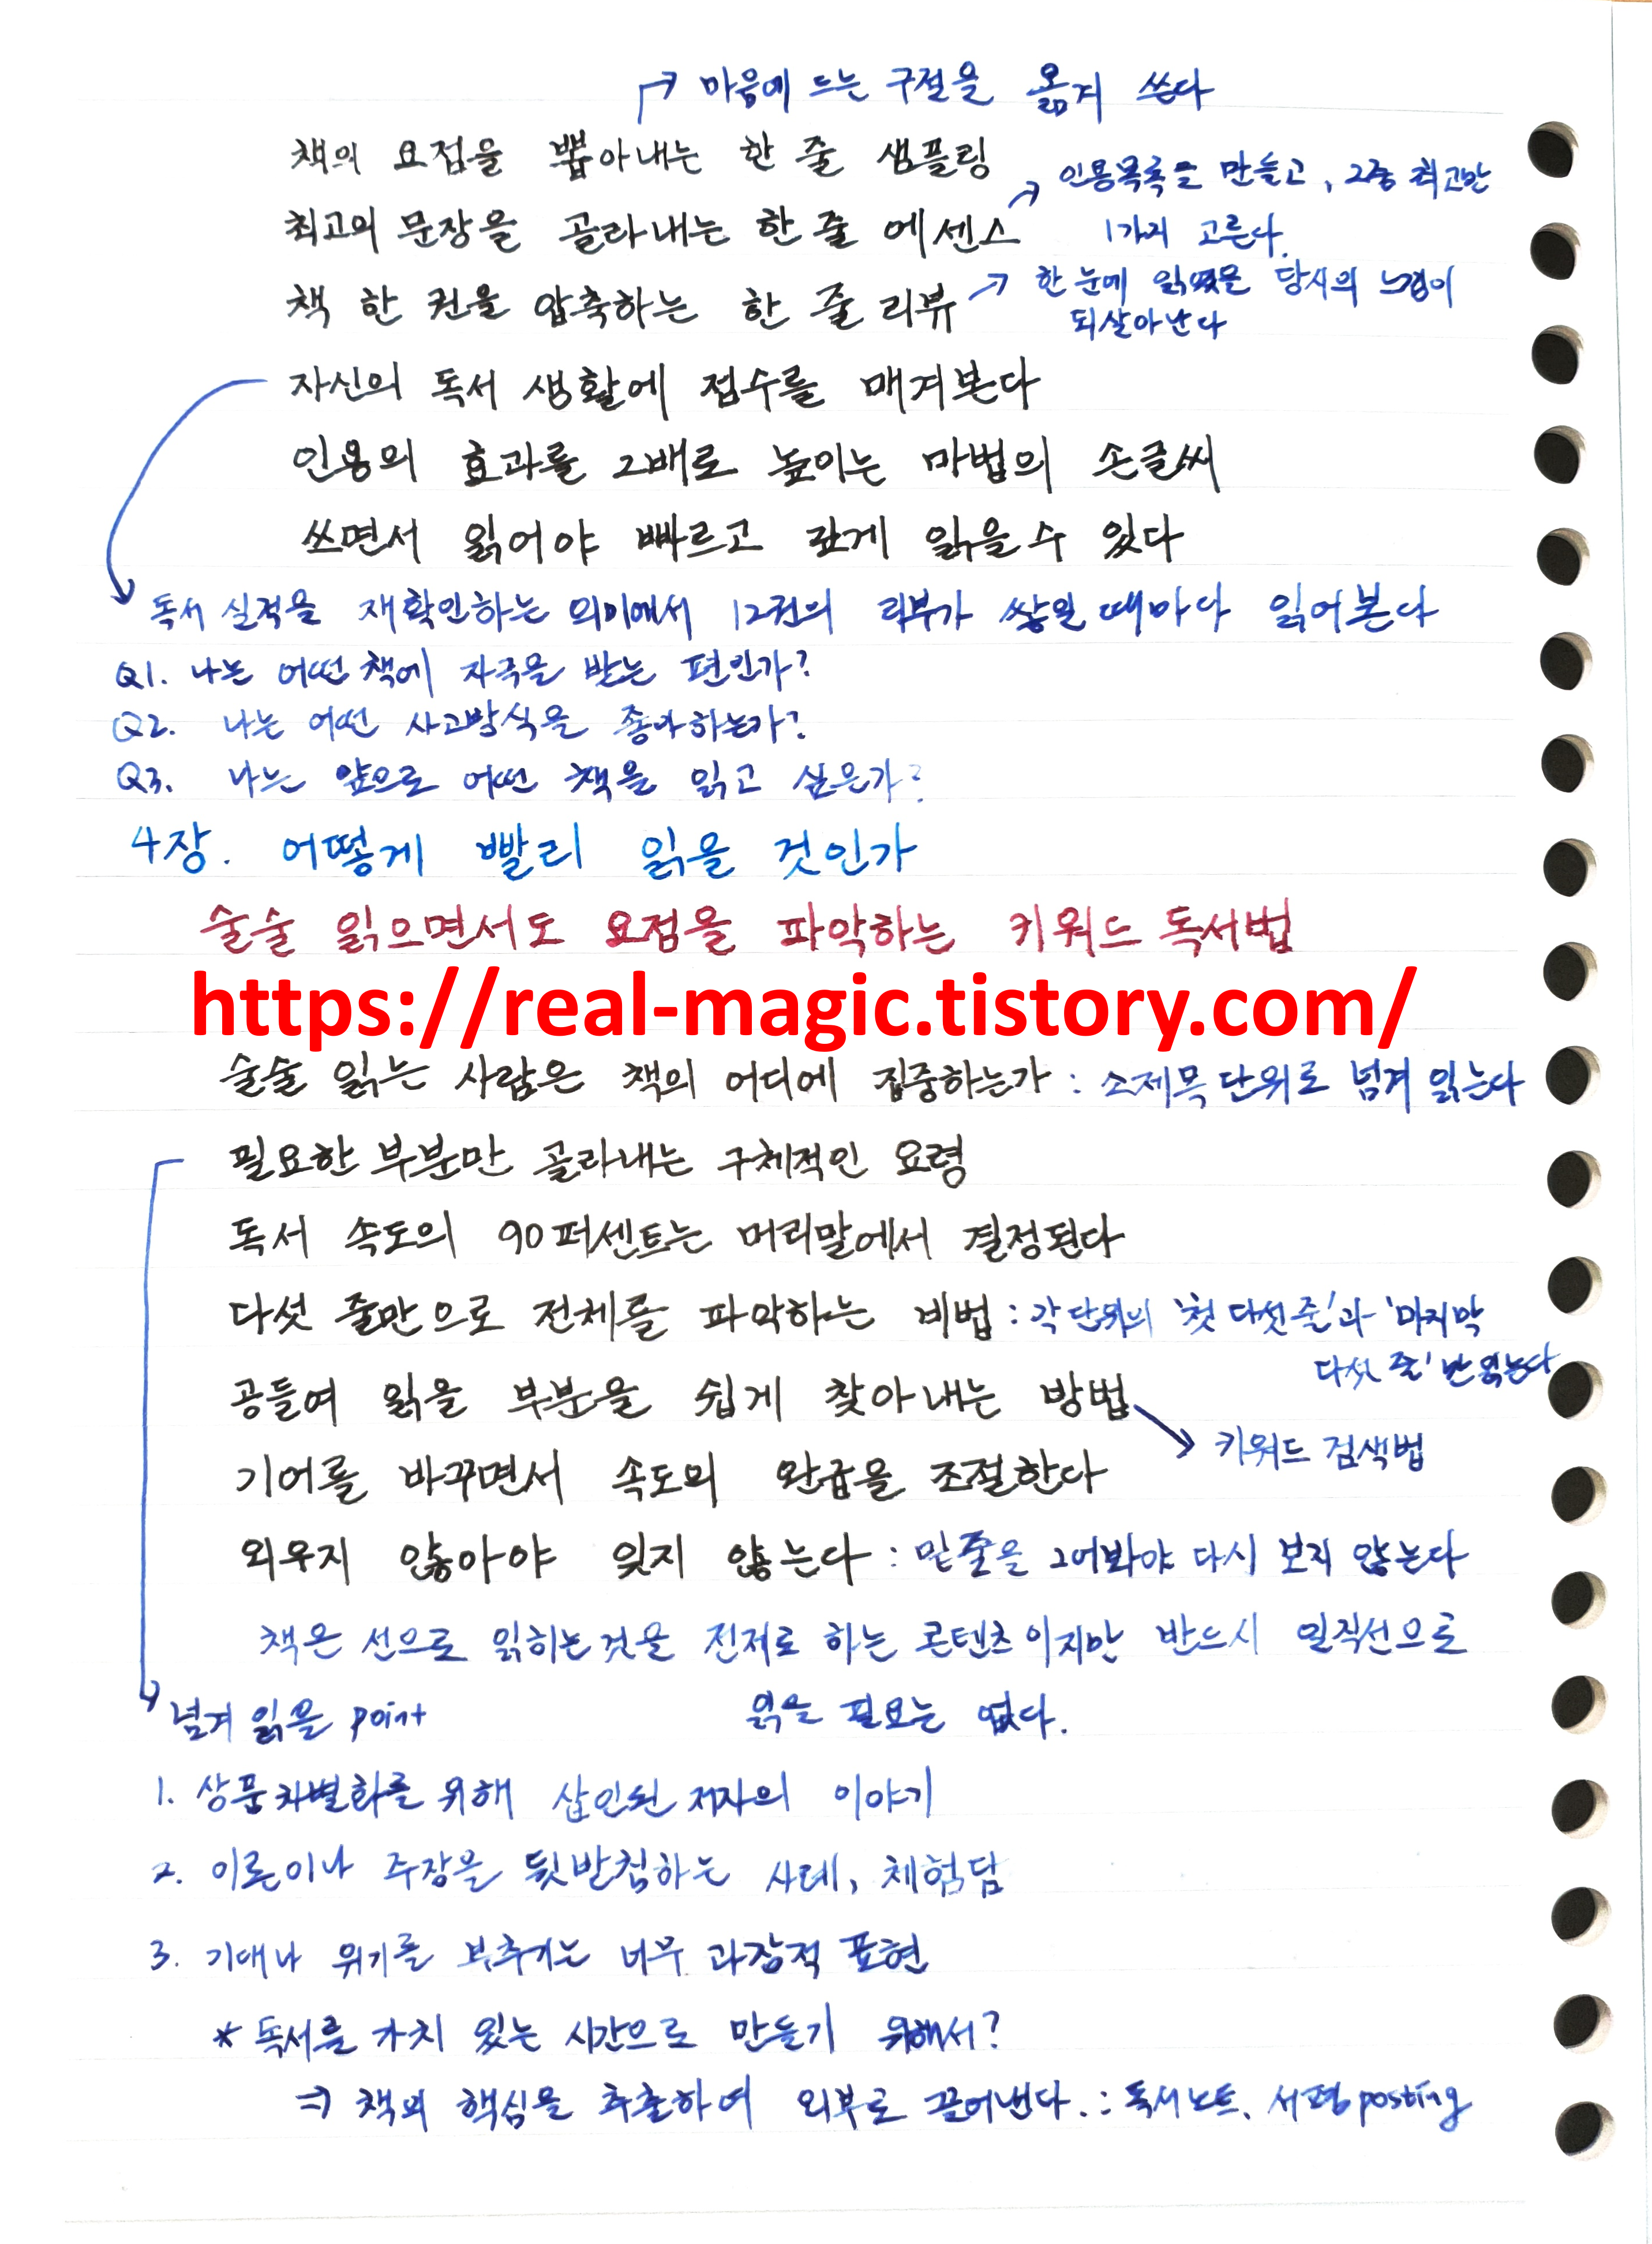 마음에 드는 구절을 옮겨 쓴다
책의 요점을 뽑아내는 한 줄 샘플링
인용목록을 만들고, 그중 최고만
최고의 문장을 골라내는 한 줄 에센스
1가지 고른다.
한 눈에 읽었을 당시의 느낌이
책 한 권을 압축하는 한 줄 리뷰
되살아난다
자신의 독서 생활에 점수를 매겨본다
인용의 효과를 2배로 높이는 마법의 손글씨
쓰면서 읽어야 빠르고 깊게 읽을 수 있다
독서 실적을 재확인하는 의미에서 12권의 리뷰가 쌓일 때마다 읽어본다
Q1. 나는 어떤 책에 자극을 받는 편인가?
Q2. 나는 어떤 사고방식을 좋아하는가?
Q3. 나는 앞으로 어떤 책을 읽고 싶은가?
4장. 어떻게 빨리 읽을 것인가
술술 읽으면서도 요점을 파악하는 키워드 독서법
https://real-magic.tistory.com/
술술 읽는 사람은 책의 어디에 집중하는가 : 소제목 단위로 넘겨 읽는다
필요한 부분만 골라내는 구체적인 요령
독서 속도의 90퍼센트는 머리말에서 결정된다
다섯 줄만으로 전체를 파악하는 비법 : 각 단위의 '첫 다섯 줄'과 '마지막
다섯 줄'만 읽는다
공들여 읽을 부분을 쉽게 찾아내는 방법
키워드 검색법
기어를 바꾸면서 속도의 완급을 조절한다
외우지 않아야 잊지 않는다 : 밑줄을 그어봐야 다시 보지 않는다
책은 선으로 읽히는 것을 전제로 하는 콘텐츠이지만 반드시 일직선으로
읽을 필요는 없다.
넘겨 읽을 point
1. 상품차별화를 위해 삽입된 저자의 이야기
2. 이론이나 주장을 뒷받침하는 사례, 체험담
3. 기대나 위기를 부추기는 너무 과장적 표현
* 독서를 가치 있는 시간으로 만들기 위해서?
⇒ 책의 핵심을 추출하여 외부로 끌어낸다. : 독서노트, 서평posting